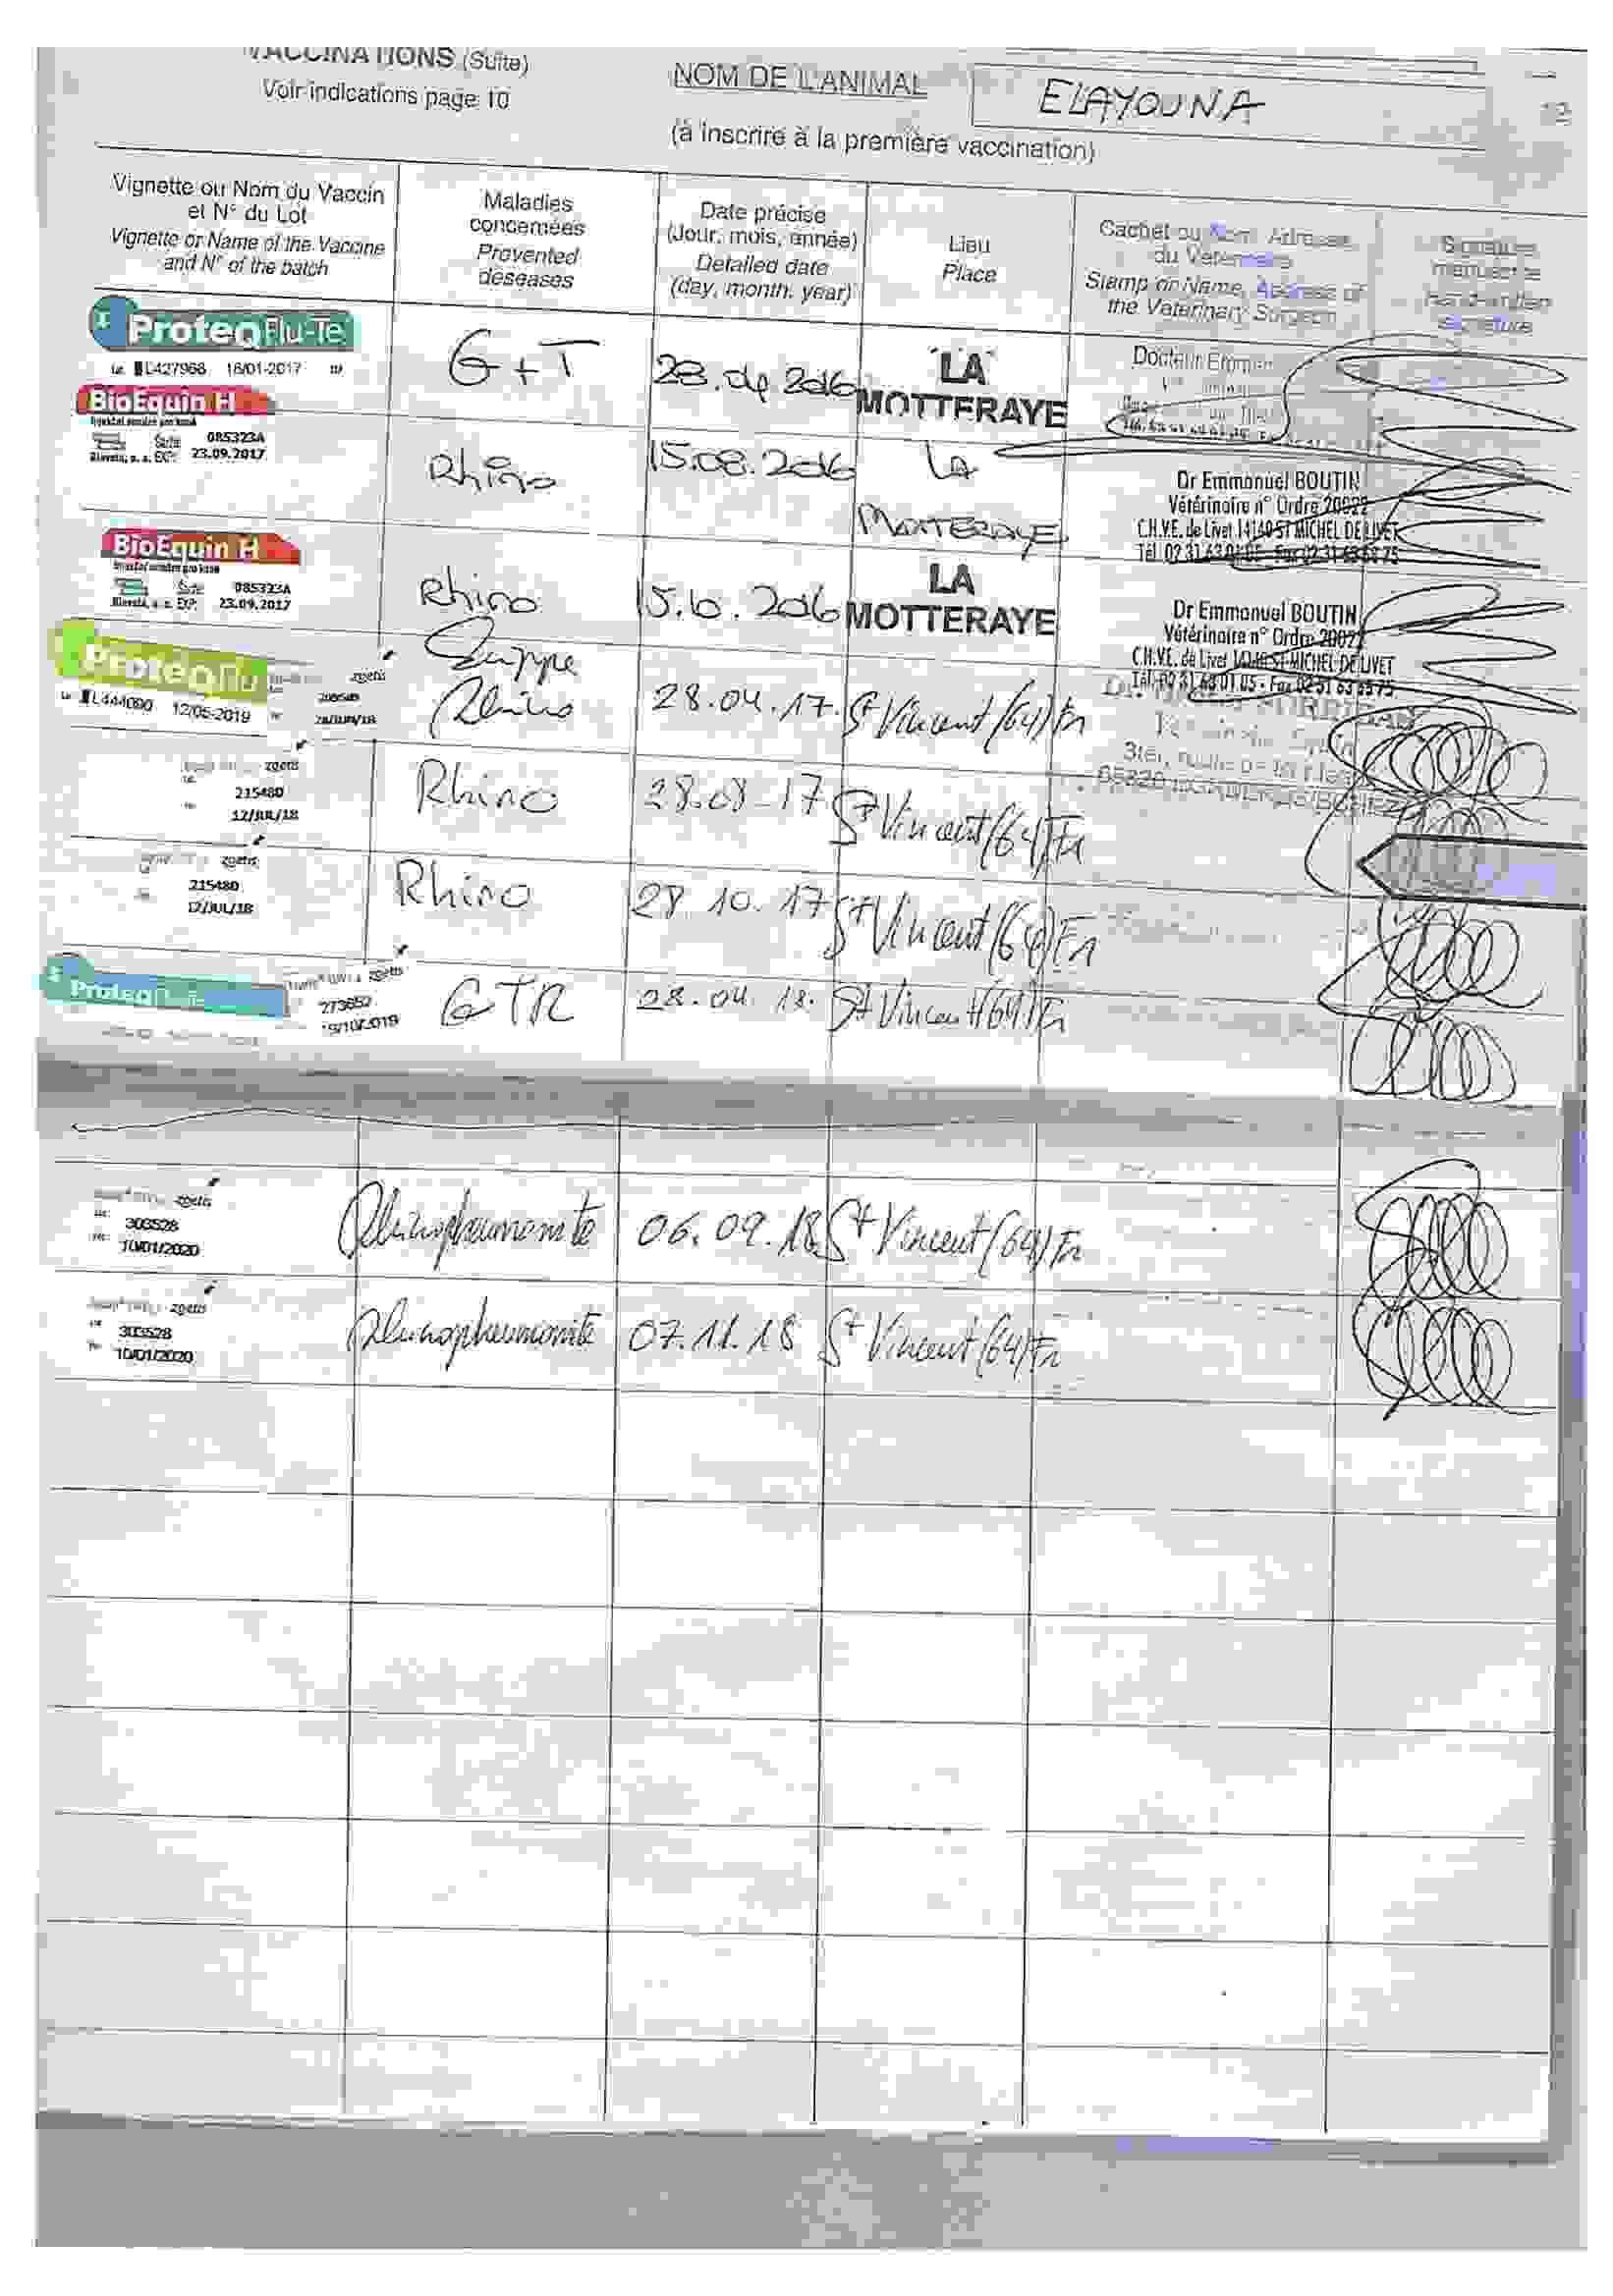 VACCINATIONS (Suite)
Voir indications page 10
NOM DE L'ANIMAL
ELAYOUNA
(à inscrire à la première vaccination)
Vignette ou Nom du Vaccin
et N° du Lot
Vignette or Name of the Vaccine
and N° of the batch
Maladies
concernées
Prevented
deseases
Date précise
(Jour, mois, année)
Detailed date
(day, month, year)
Lieu
Place
Cachet ou Nom, Adresse
du Vétérinaire
Stamp or Name, Address of
the Veterinary Surgeon
Signature
manuscrite
Hand-written
signature
ProteqFlu-Te
L427966 16/01-2017
G+T
28.04 2016
LA
MOTTERAYE
Docteur
BioEquin H
085323A
23.09.2017
Rhino
15.08.2016
LA
MOTTERAYE
Dr Emmanuel BOUTIN
Vétérinaire n° Ordre 20022
C.H.V.E. de Livet 14140 ST MICHEL DE LIVET
Tél. 02 31 63 01 05 - Fax 02 31 63 63 75
BioEquin H
085323A
23.09.2017
Rhino
15.10.2016
LA
MOTTERAYE
Dr Emmanuel BOUTIN
Vétérinaire n° Ordre 20022
C.H.V.E. de Livet 14140 ST MICHEL DE LIVET
Tél. 02 31 63 01 05 - Fax 02 31 63 63 75
ProteqFlu
L444090 12/05-2019
zoetis
Grippe
Rhino
28.04.17.
St Vincent (64) Fr
zoetis
215480
12/JUL/18
Rhino
28.08-17
St Vincent (64) Fr
zoetis
215480
12/JUL/18
Rhino
28 10. 17
St Vincent (64) Fr
Proteq
zoetis
273652
GTR
28.04.18.
St Vincent (64) Fr
zoetis
303528
10/01/2020
Rhinopneumonite
06.09.18
St Vincent (64) Fr
zoetis
303528
10/01/2020
Rhinopneumonite
07.11.18
St Vincent (64) Fr